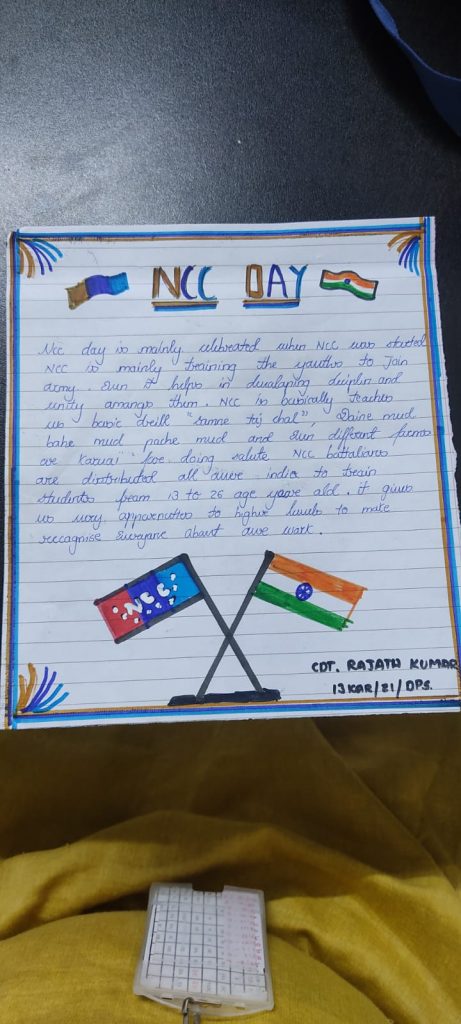 NCC DAY
Ncc day is mainly celebrated when NCC was started
NCC is mainly training the youths to Join
army. Even it helps in devaloping diciplin and
unity amongs them. NCC is basically teaches
us basic drill "samne tej chal", Daine mud
bahe mud pache mud and even different
are Karvai for doing salute NCC battalians
are distributed all over india to train
students from 13 to 26 age year old. it gives
us to higher levels to make
recognise everyone about our work.
NCC
CDT. RAJATH KUMAR
13KAR/21/DPS.